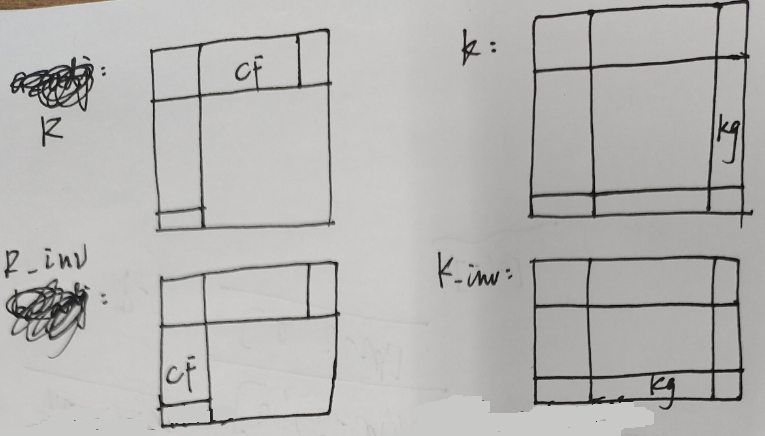 CF
R
k:
kg
R_inv
:
CF
K_inv:
kg